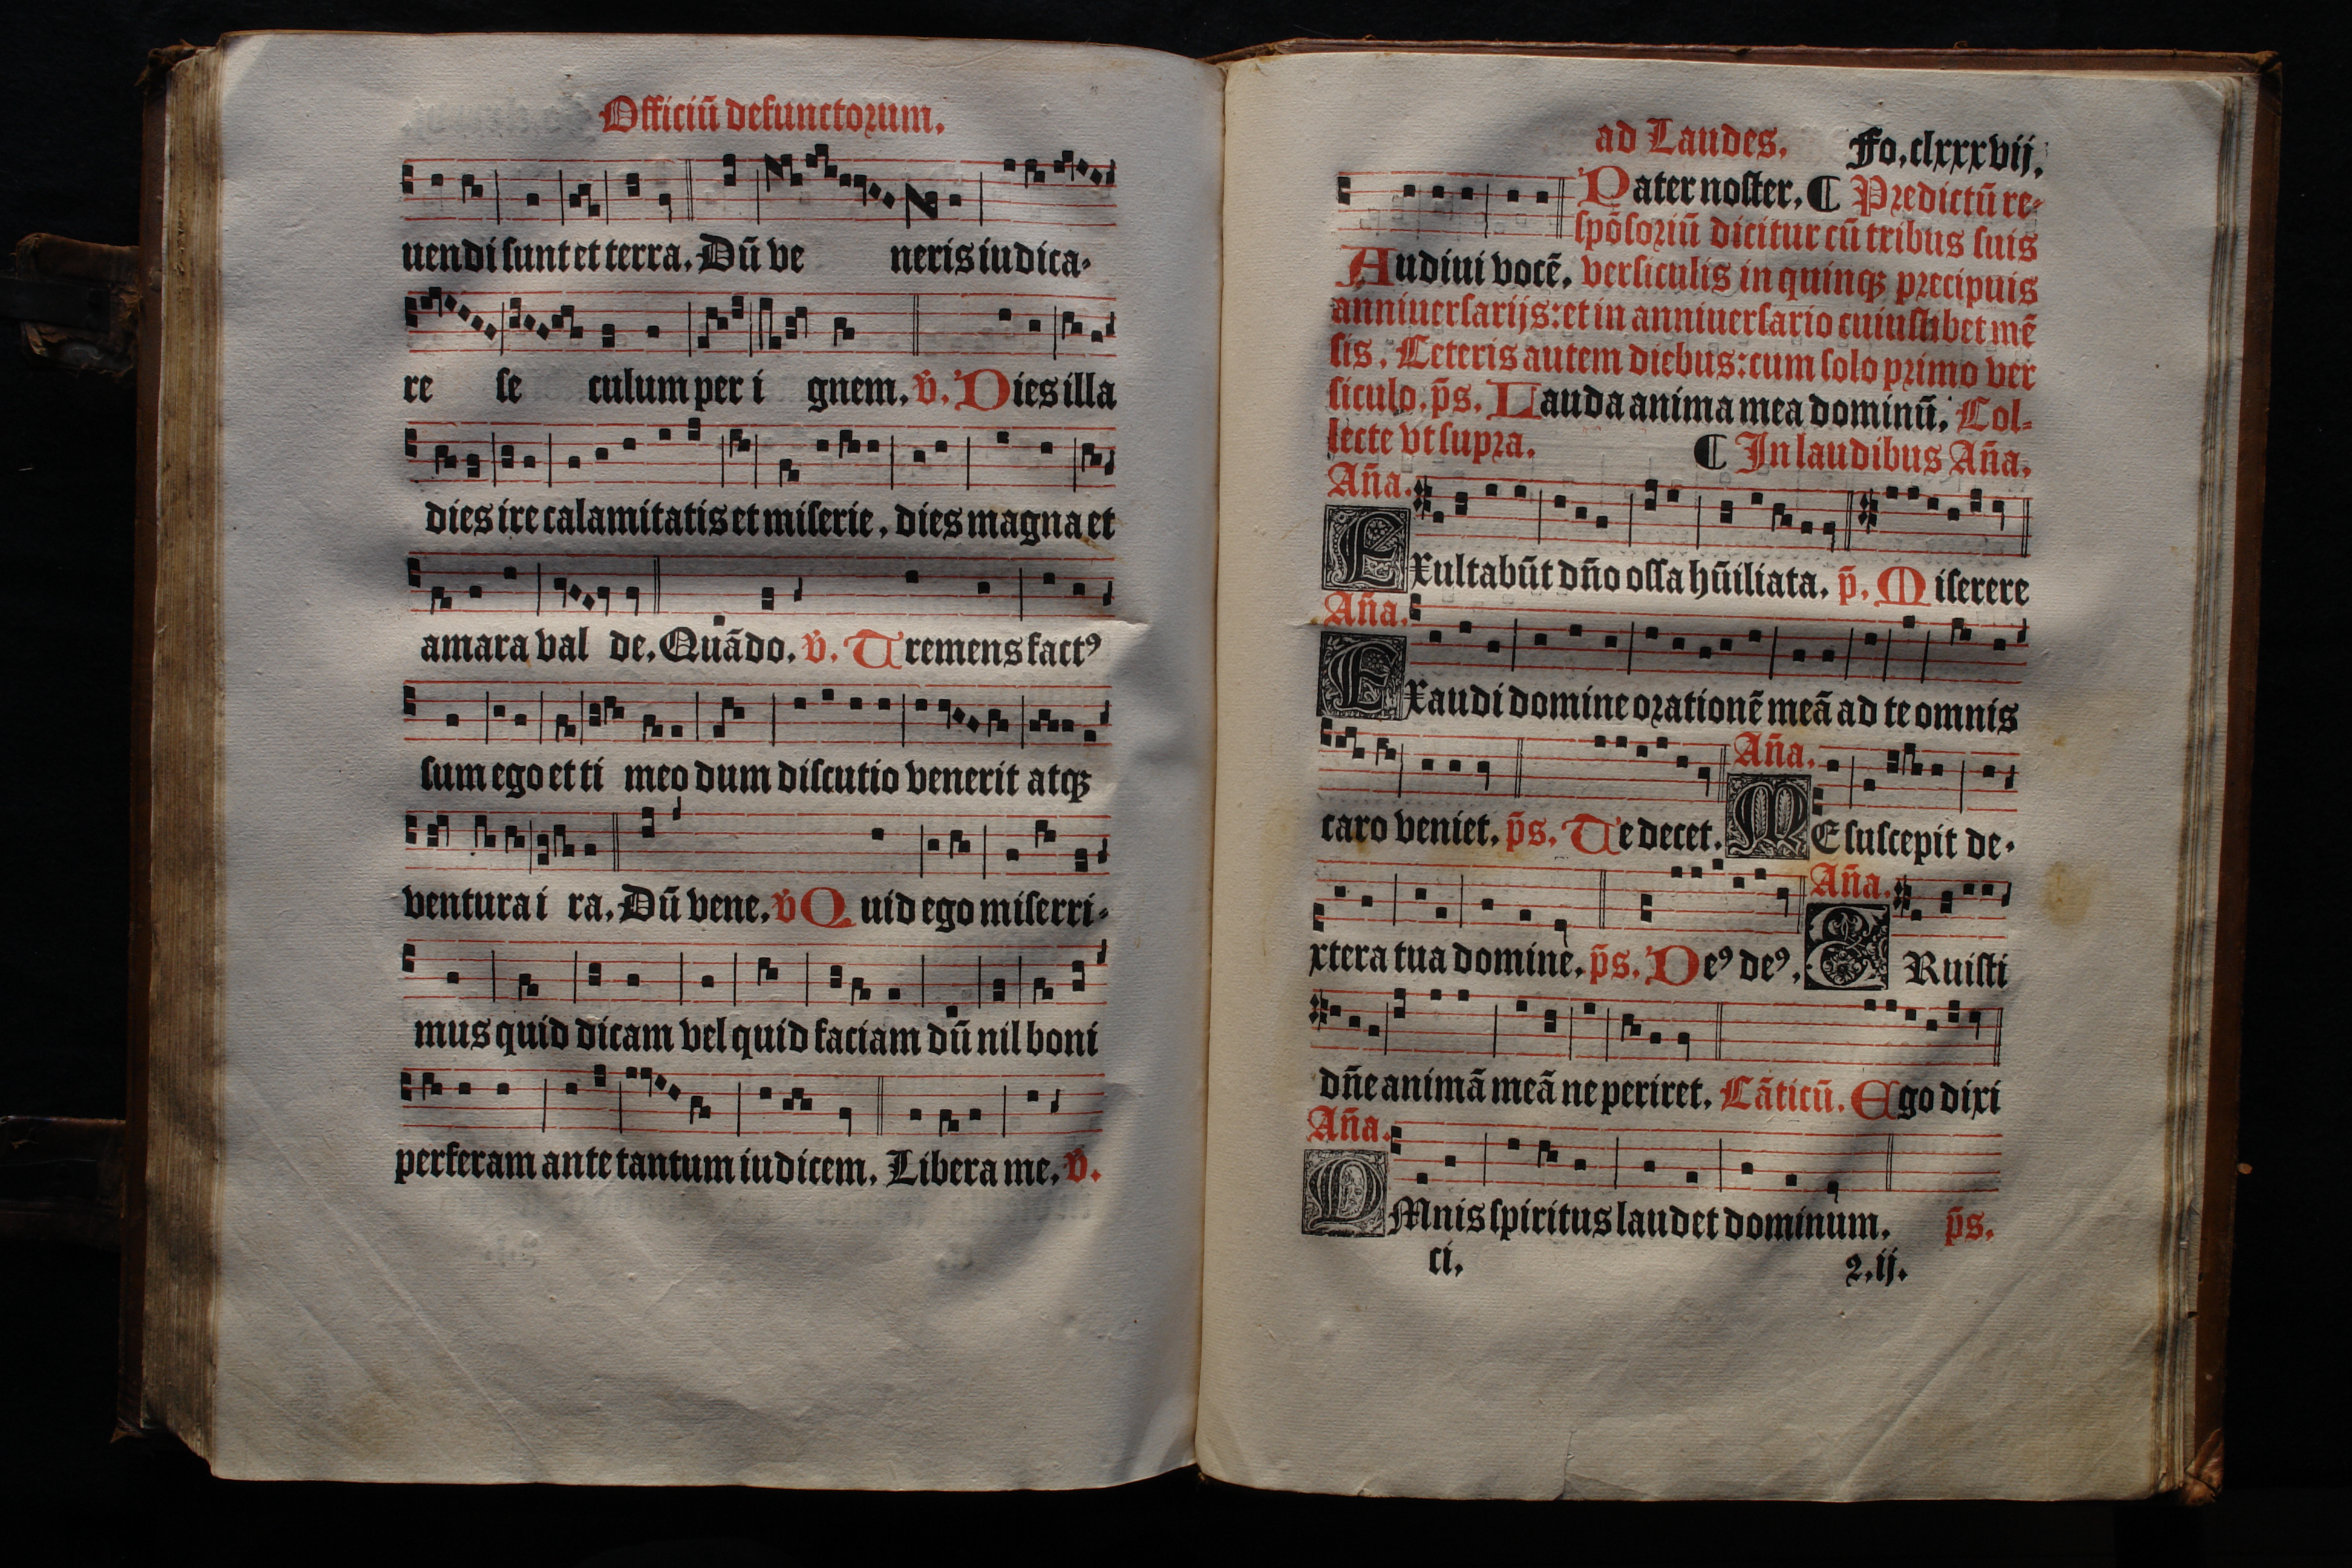 Officiū defunctorum.
uendi sunt et terra. Dū ve neris iudica-
re se culum per i gnem. v̄. Dies illa
dies ire calamitatis et miserie. dies magna et
amara val de. Quādo. v̄. Tremens factꝰ
sum ego et ti meo dum discutio venerit atqꝫ
ventura i ra. Dū vene. v̄ Quid ego miserri-
mus quid dicam vel quid faciam dū nil boni
perferam ante tantum iudicem. Libera me. v̄.
ad Laudes. Fo. clxxxvij.
Pater noster. ¶ Predictū re-
spōsoriū dicitur cū tribus suis
Audiui vocē. versiculis in quinqꝫ precipuis
anniuersarijs: et in anniuersario cuiuslibet mē
sis. Ceteris autem diebus: cum solo primo ver
siculo. p̄s. Lauda anima mea dominū. Col-
lecte vt supra. ¶ In laudibus An̄a.
An̄a.
Exultabūt dn̄o ossa hūiliata. p̄. Miserere
An̄a.
Exaudi domine orationē meā ad te omnis
An̄a.
caro veniet. p̄s. Te decet. ME suscepit de-
An̄a.
xtera tua domine. p̄s. Deꝰ deꝰ. ERuisti
dn̄e animā meā ne periret. Cāticū. Ego dixi
An̄a.
OMnis spiritus laudet dominum. p̄s.
ci. 2.ij.